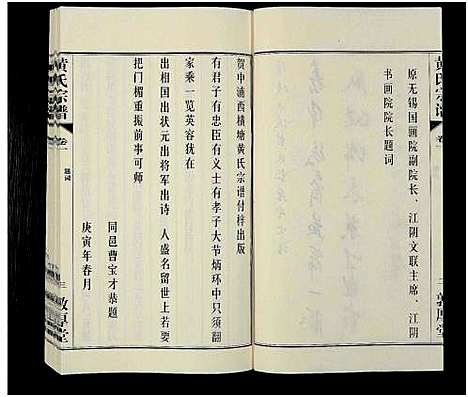 黄氏宗谱
卷一
二
敦厚堂
原无锡国画院副院长、江阴文联主席、江阴
书画院院长题词
黄氏宗谱
卷一
题词
三
敦厚堂
贺申浦西横塘黄氏宗谱付梓出版
有君子有忠臣有义士有孝子大节炳环中只须翻
家乘一览英容犹在
出相国出状元出将军出诗人盛名留世上若要
把门楣重振前事可师
同邑曹宝才恭题
庚寅年春月